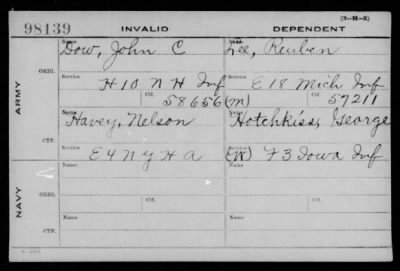 (3-H-5)
98139 INVALID DEPENDENT
Name Name
Dow, John C Lee, Reuben
ARMY ORIG. Service Service
H 10 N H Inf E 18 Mich Inf
Ctf. 58656 (M) Ctf. 57211
Name Name
Havey, Nelson Hotchkiss, George
CTF. Service Service
E 4 N Y H A (W) F 3 Iowa Inf
NAVY Name Name
ORIG. Service Ctf. Service Ctf.
Name Name
CTF. Service Service